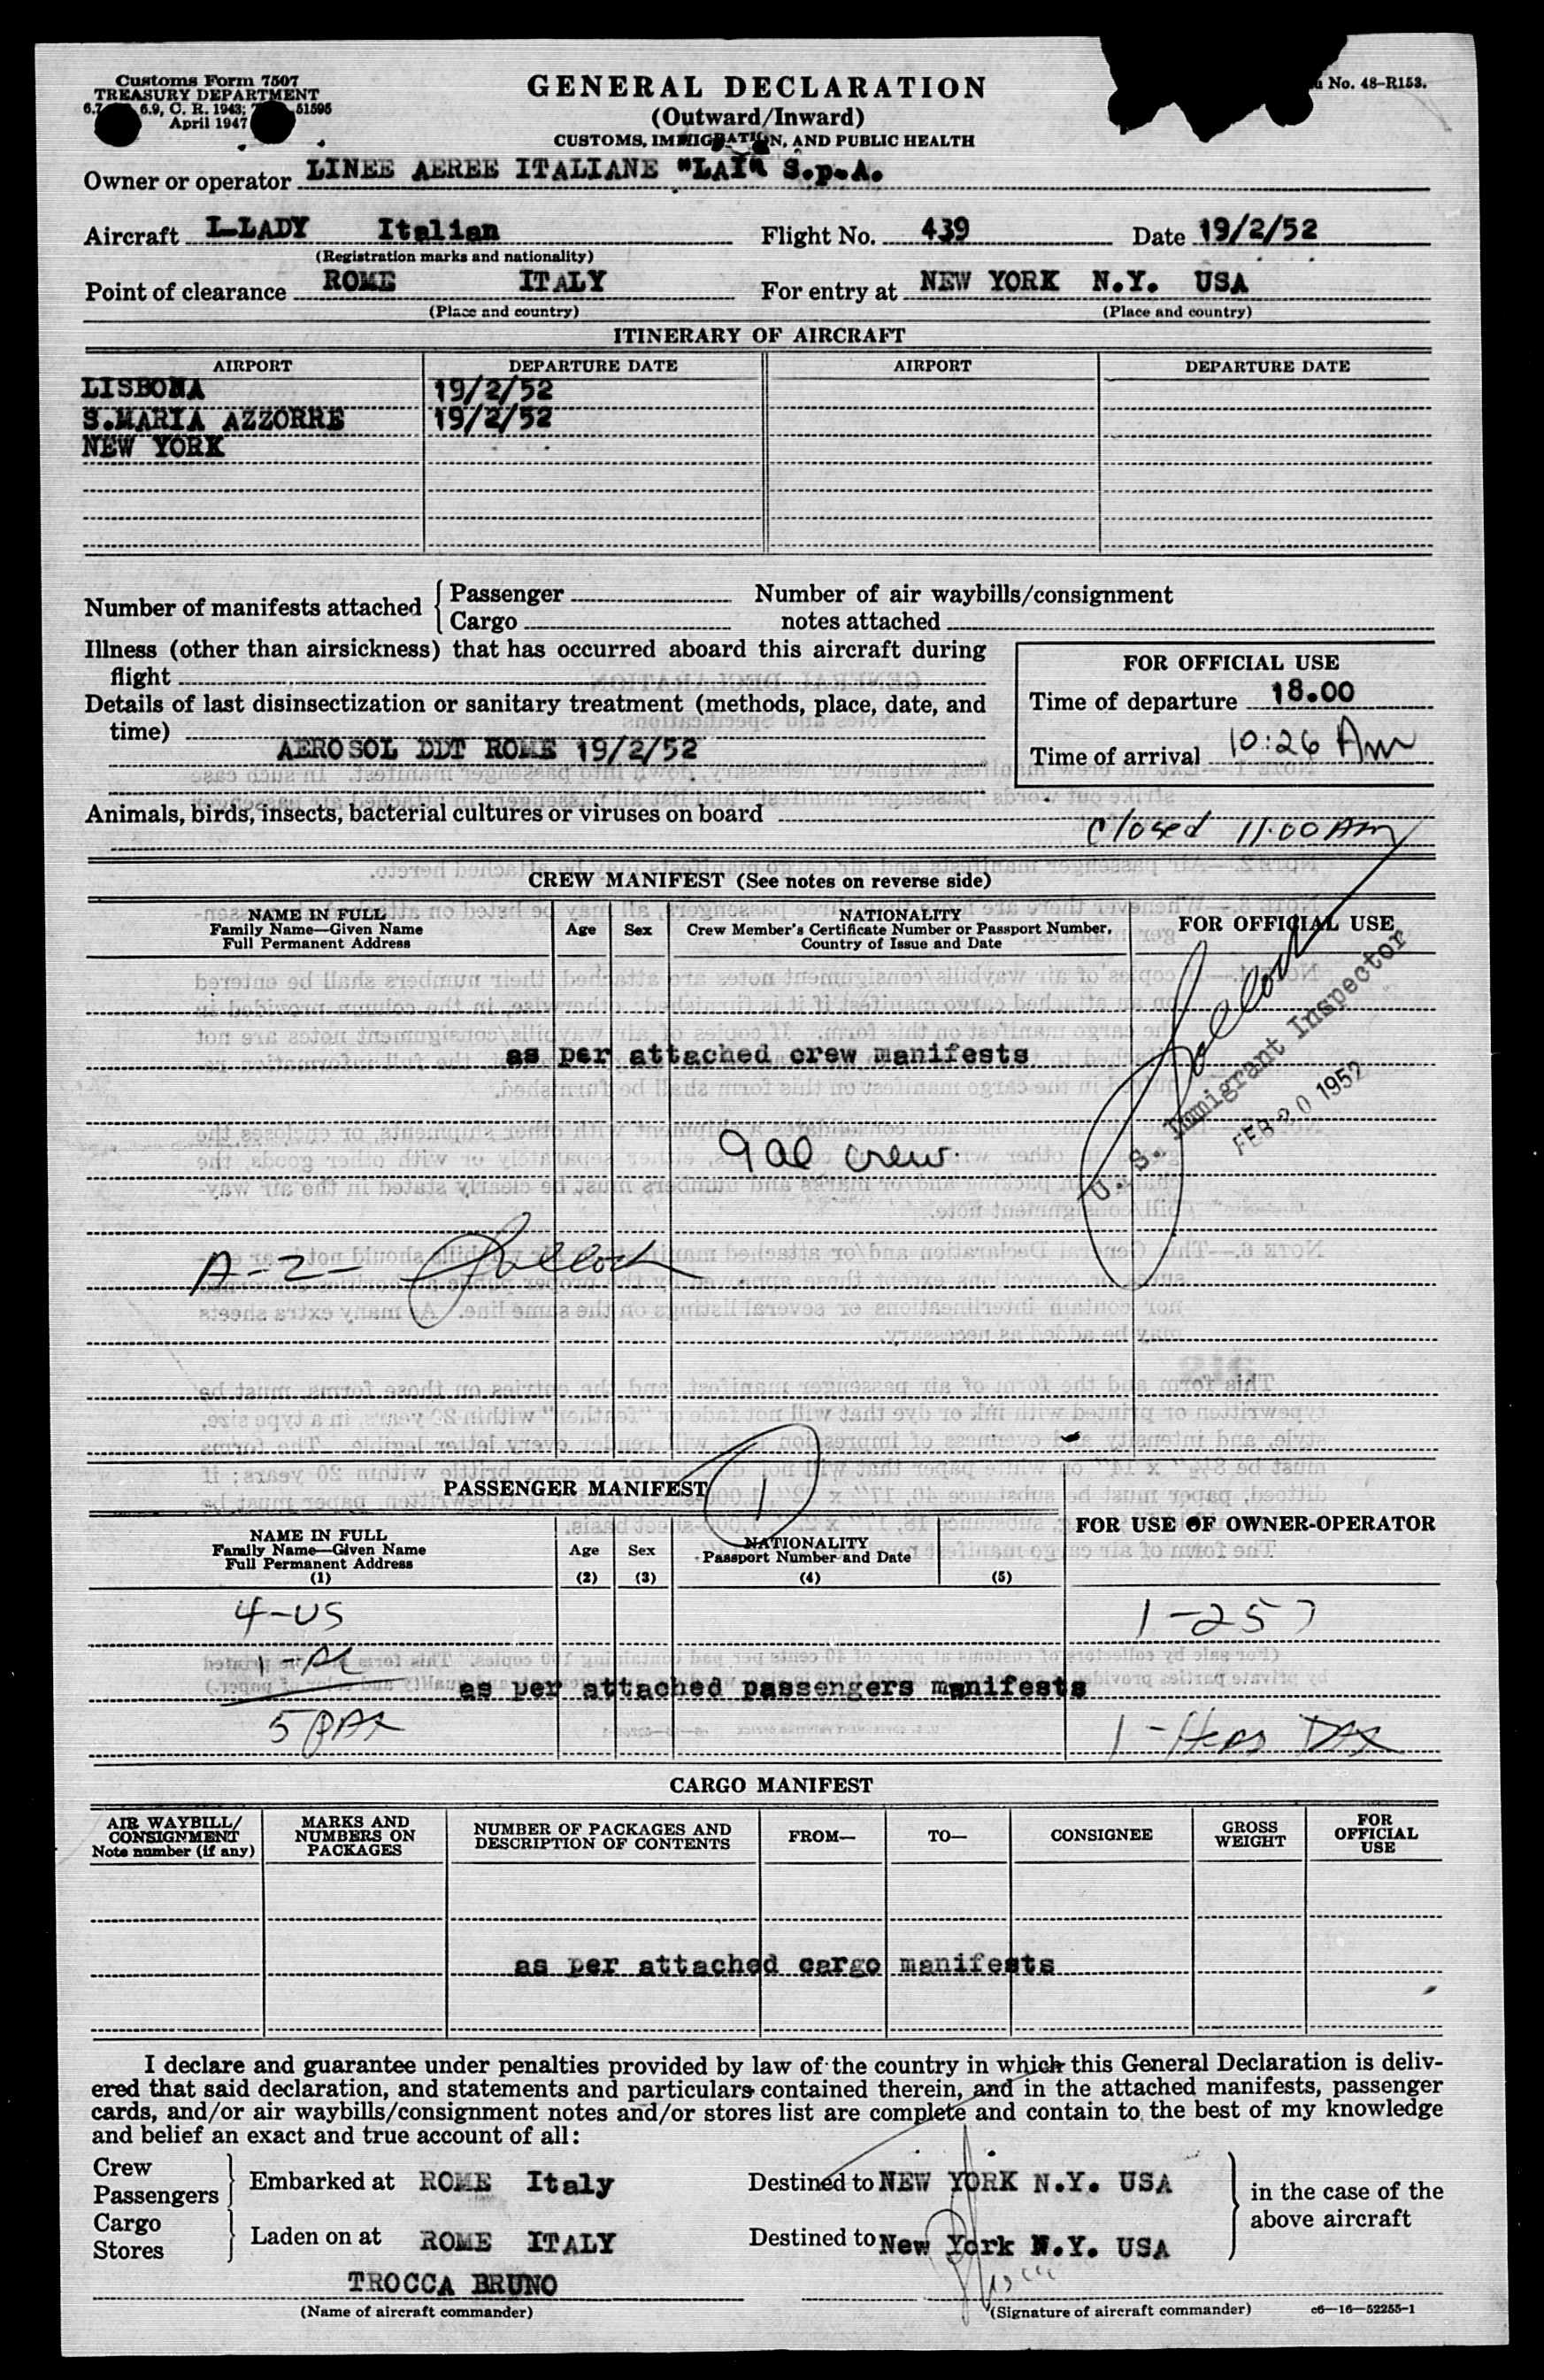 Customs Form 7507
TREASURY DEPARTMENT
6.9, C. R. 1943; 51595
April 1947
No. 48-R153.
GENERAL DECLARATION
(Outward/Inward)
CUSTOMS, IMMIGRATION, AND PUBLIC HEALTH
Owner or operator LINEE AEREE ITALIANE "LAI" S.p.A.
Aircraft I-LADY Italian Flight No. 439 Date 19/2/52
(Registration marks and nationality)
Point of clearance ROME ITALY For entry at NEW YORK N.Y. USA
(Place and country) (Place and country)
ITINERARY OF AIRCRAFT
AIRPORT DEPARTURE DATE AIRPORT DEPARTURE DATE
LISBONA 19/2/52
S.MARIA AZZORRE 19/2/52
NEW YORK
Number of manifests attached { Passenger Cargo
Number of air waybills/consignment notes attached
Illness (other than airsickness) that has occurred aboard this aircraft during
flight
Details of last disinsectization or sanitary treatment (methods, place, date, and
time)
AEROSOL DDT ROME 19/2/52
FOR OFFICIAL USE
Time of departure 18.00
Time of arrival 10:26 Am
Animals, birds, insects, bacterial cultures or viruses on board
Closed 11:00 Am
CREW MANIFEST (See notes on reverse side)
NAME IN FULL
Family Name—Given Name
Full Permanent Address
Age
Sex
NATIONALITY
Crew Member's Certificate Number or Passport Number,
Country of Issue and Date
FOR OFFICIAL USE
as per attached crew manifests
U. S. Immigrant Inspector
FEB 20 1952
9 al crew.
A-2-
PASSENGER MANIFEST
1
NAME IN FULL
Family Name—Given Name
Full Permanent Address
(1)
Age
(2)
Sex
(3)
NATIONALITY
Passport Number and Date
(4) (5)
FOR USE OF OWNER-OPERATOR
4-US
1-257
1-AL
as per attached passengers manifests
5 PAX
1-Head Tax
CARGO MANIFEST
AIR WAYBILL/
CONSIGNMENT
Note number (if any)
MARKS AND
NUMBERS ON
PACKAGES
NUMBER OF PACKAGES AND
DESCRIPTION OF CONTENTS
FROM—
TO—
CONSIGNEE
GROSS
WEIGHT
FOR
OFFICIAL
USE
as per attached cargo manifests
I declare and guarantee under penalties provided by law of the country in which this General Declaration is deliv-
ered that said declaration, and statements and particulars contained therein, and in the attached manifests, passenger
cards, and/or air waybills/consignment notes and/or stores list are complete and contain to the best of my knowledge
and belief an exact and true account of all:
Crew
Passengers } Embarked at ROME Italy Destined to NEW YORK N.Y. USA
Cargo
Stores } Laden on at ROME ITALY Destined to New York N.Y. USA
in the case of the
above aircraft
TROCCA BRUNO
(Name of aircraft commander) (Signature of aircraft commander) c6—16—52255-1